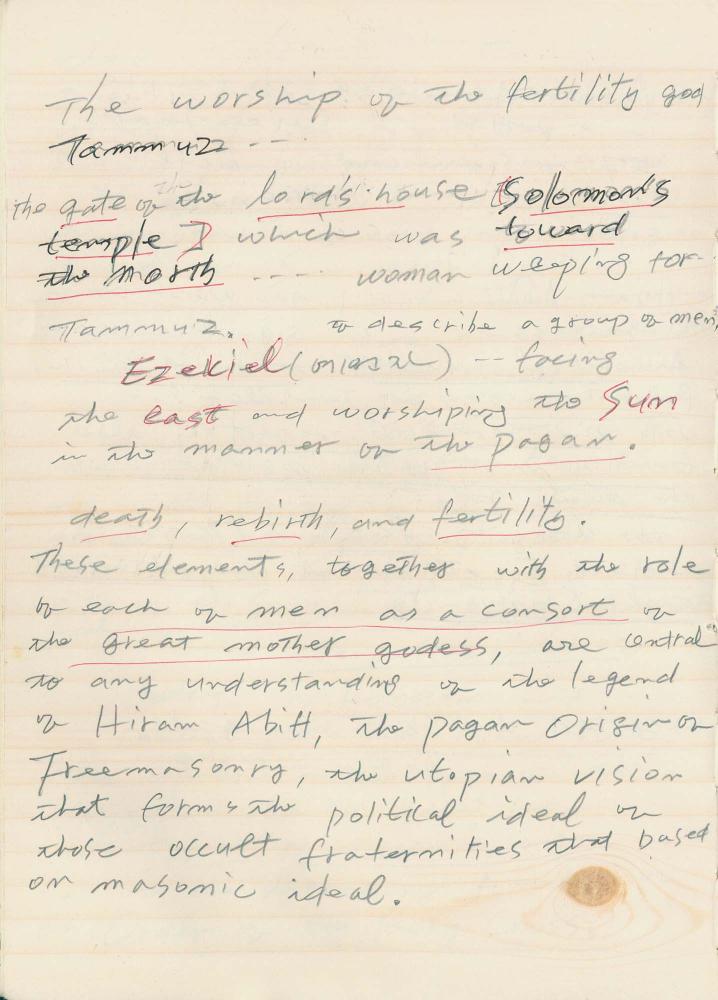 The worship of the fertility god
Tammuz ---
the gate of the lord's house [Solomon's
temple] which was toward
the North ---- woman weeping for
Tammuz. to describe a group of men,
Ezekiel ( ) -- facing
the east and worshiping the Sun
in the manner of the pagan.
death, rebirth, and fertility.
These elements, together with the role
of each of men as a consort of
the great mother godess, are central
to any understanding of the legend
of Hiram Abiff, the pagan Origin of
Freemasonry, the utopian vision
that forms the political ideal of
those occult fraternities that based
on masonic ideal.